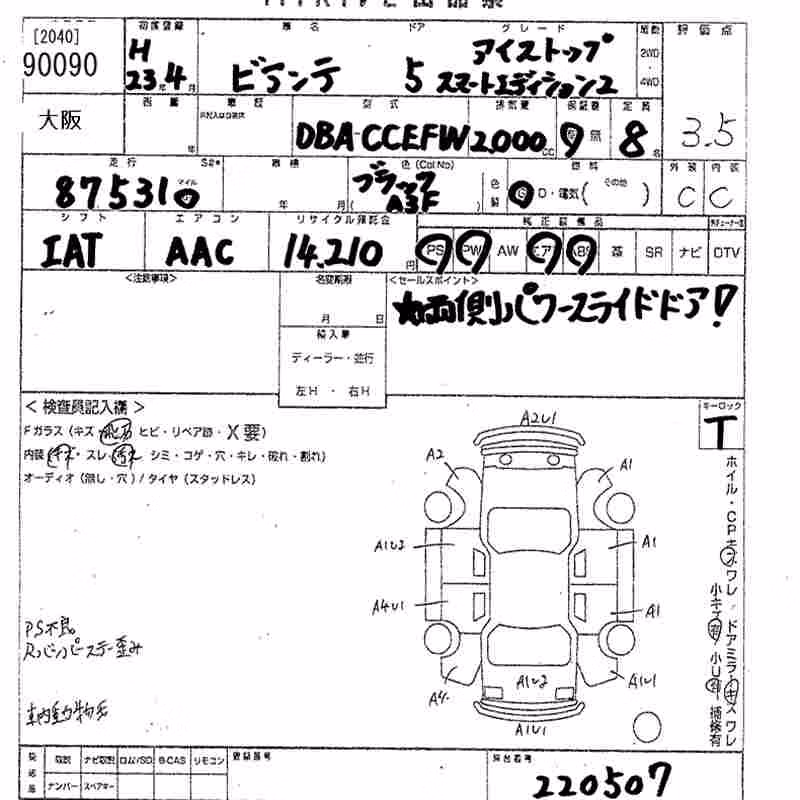 [2040]
90090
初度登録 車名 ドア グレード 駆動 評価点
H
23年4月
ビアンテ 5 アイストップ
スマートエディション2
2WD
4WD
大阪
型式 排気量 定員
DBA-CCEFW 2,000cc 無 8名 3.5
走行 車検 色(ColNo) 燃料 外装 内装
87531 年 月 ブラック
A3F D・電気( その他 ) C C
シフト エアコン リサイクル預託金 純正装備品
IAT AAC 14,210円 PS PW AW エア ABS 革 SR ナビ DTV
<注意事項> 名変期限 <セールスポイント>
★両側パワースライドドア!
月 日
輸入車
ディーラー・並行
左H ・ 右H
<検査員記入欄> キーロック
T
Fガラス(キズ・飛石・ヒビ・リペア跡・X要)
内装(キズ・スレ・汚れ・シミ・コゲ・穴・キレ・破れ・割れ)
オーディオ(無し・穴)/タイヤ(スタッドレス)
A2U1
A2 A1
A1U3 A1
A4U1 A1
A4 A1U2 A1U1
A1U1
ホイル・CPキズワレ/ドアミラーキズワレ
小キズ有 小U有 補修有
PS不良。
Rバンパーステー歪み
車内動物毛
取説 ナビ取説 ROM/SD B-CAS リモコン 登録番号
ナンバー スペアキー
220507